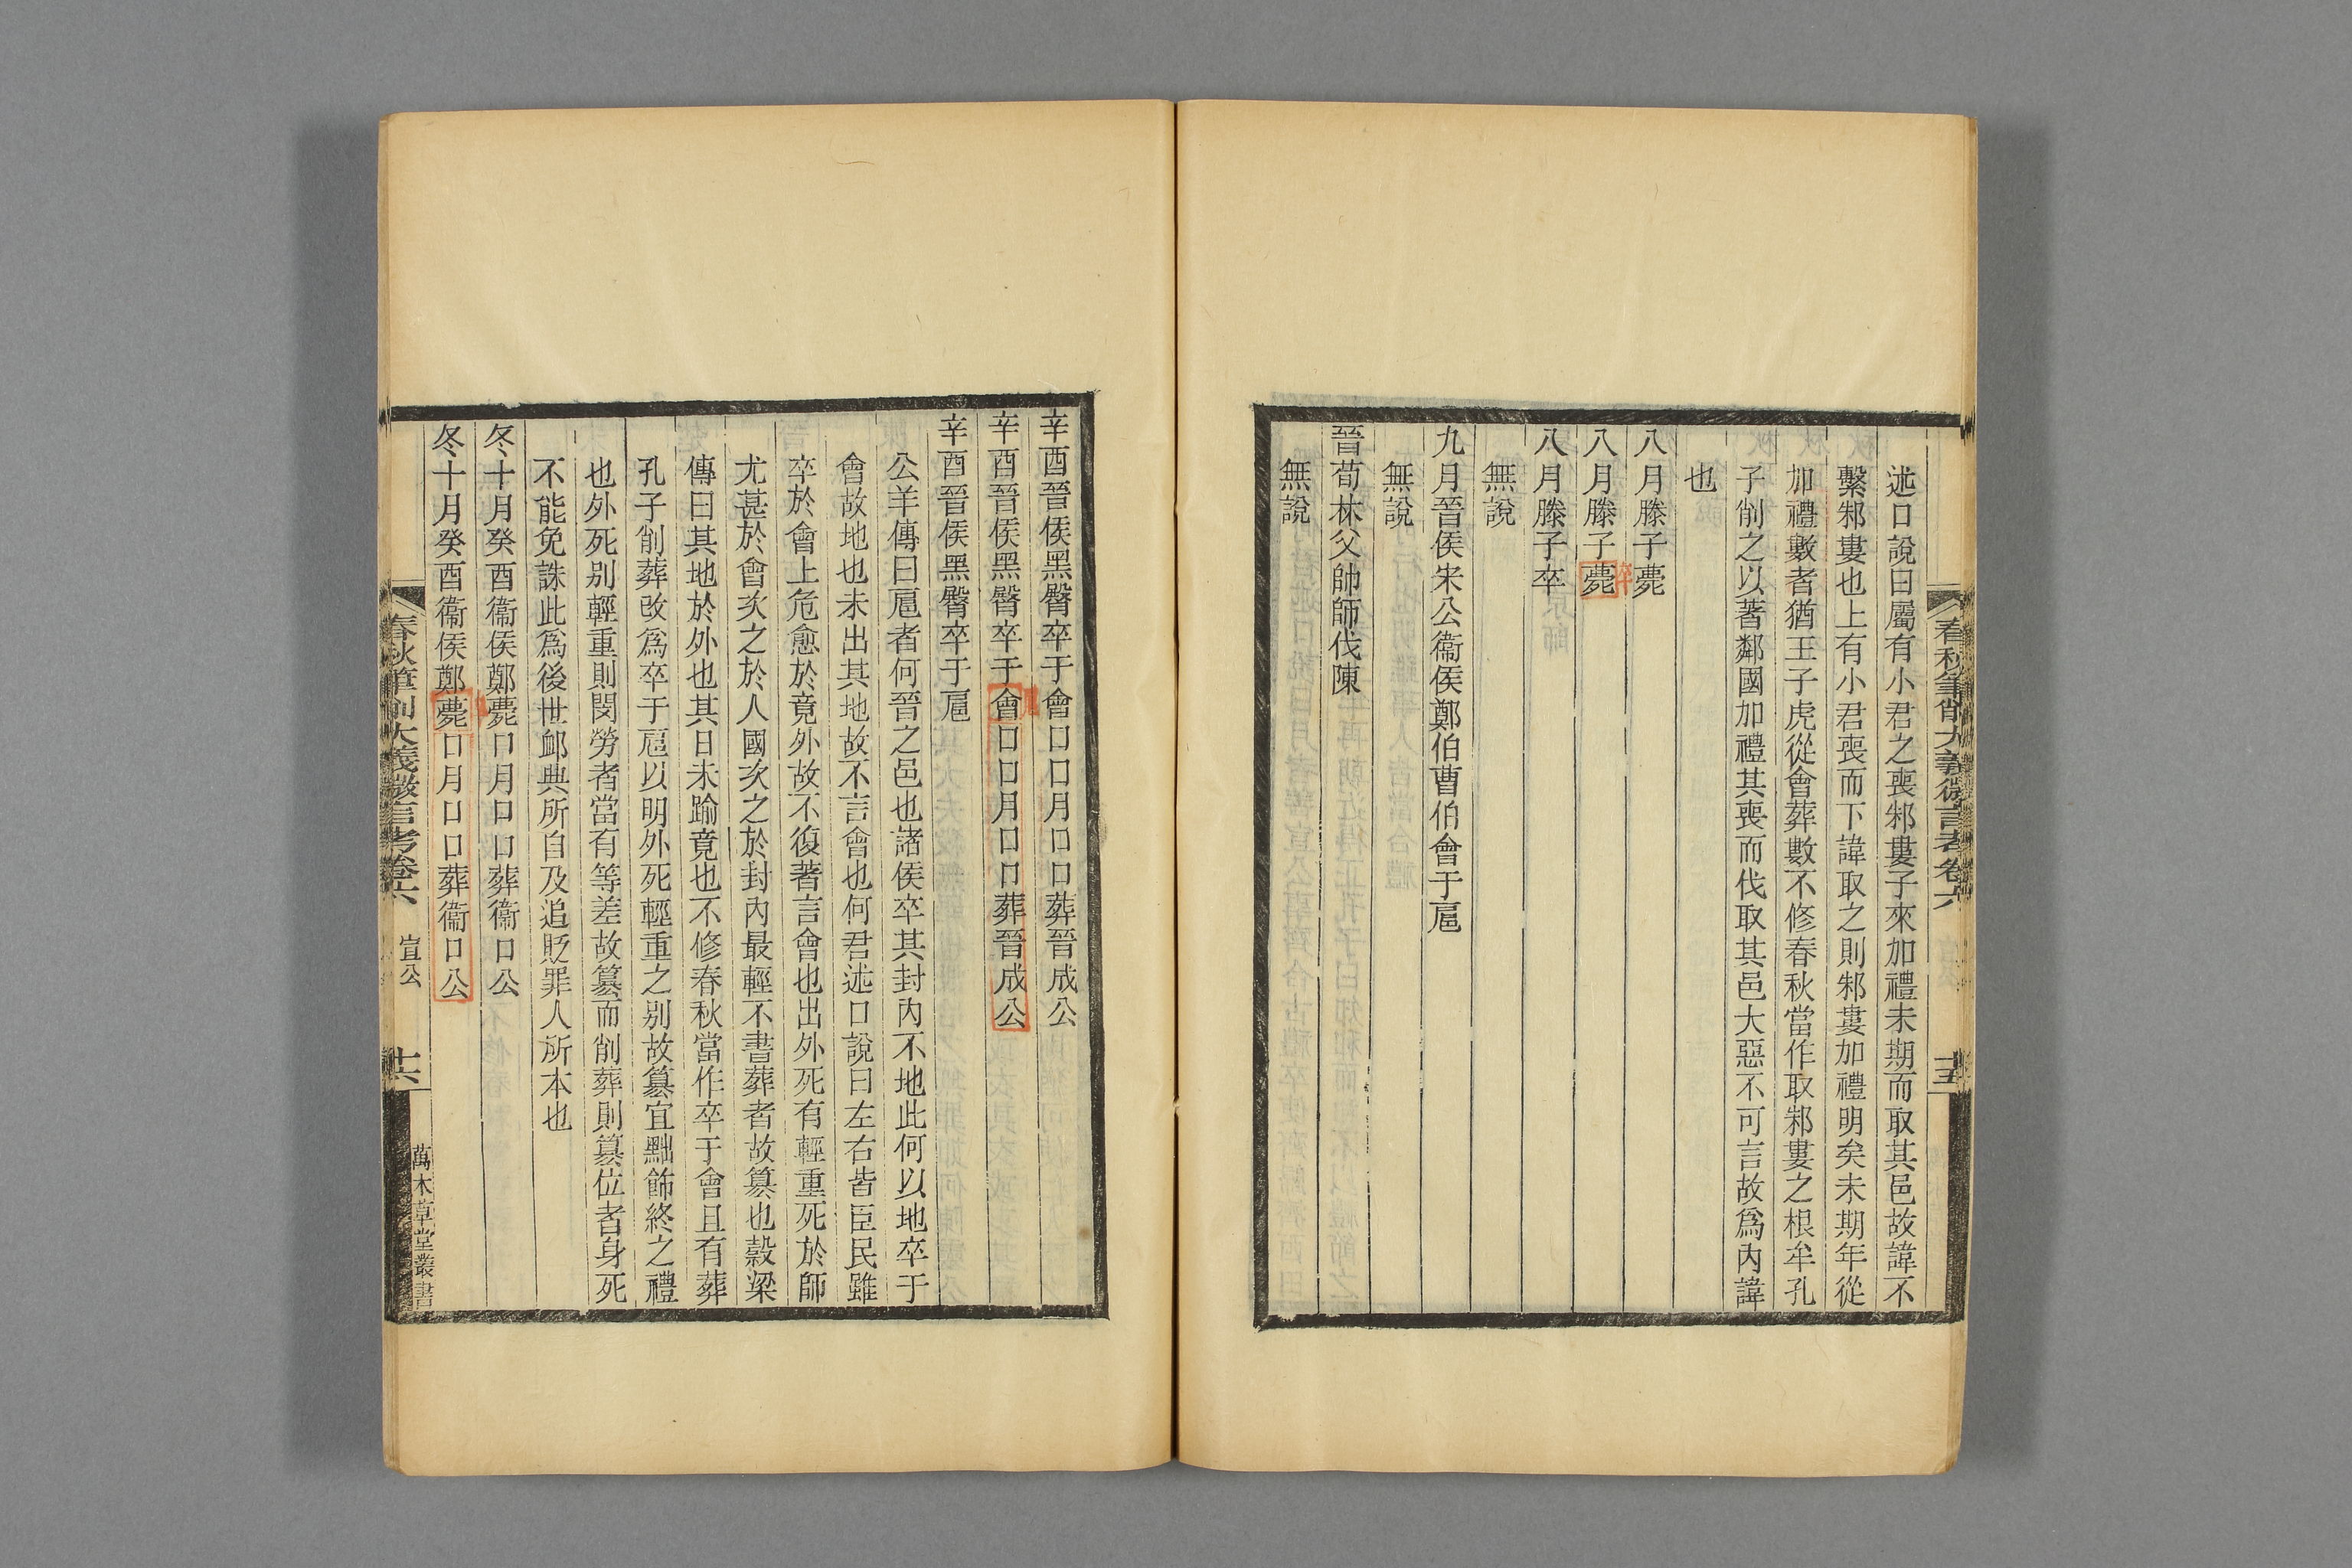 春秋筆削大義微言考卷六
十五
述口說曰屬有小君之喪邾婁子來加禮未期而取其邑故諱不
繫邾婁也上有小君喪而下諱取之則邾婁加禮明矣未期年從
加禮數者猶王子虎從會葬數不修春秋當作取邾婁之根牟孔
子削之以著鄰國加禮其喪而伐取其邑大惡不可言故爲內諱
也
八月滕子薨
卒
八月滕子薨
八月滕子卒
無說
九月晉侯宋公衞侯鄭伯曹伯會于扈
無說
晉荀林父帥師伐陳
無說
辛酉晉侯黑臀卒于會口口月口口葬晉成公
辛酉晉侯黑臀卒于會口口月口口葬晉成公
辛酉晉侯黑臀卒于扈
公羊傳曰扈者何晉之邑也諸侯卒其封內不地此何以地卒于
會故地也未出其地故不言會也何君述口說曰左右皆臣民雖
卒於會上危愈於竟外故不復著言會也出外死有輕重死於師
尤甚於會次之於人國次之於封內最輕不書葬者故篡也穀梁
傳曰其地於外也其日未踰竟也不修春秋當作卒于會且有葬
孔子削葬改爲卒于扈以明外死輕重之別故篡宜黜飾終之禮
也外死別輕重則閔勞者當有等差故篡而削葬則篡位者身死
不能免誅此爲後世卹典所自及追貶罪人所本也
冬十月癸酉衞侯鄭薨口月口口葬衞口公
冬十月癸酉衞侯鄭薨口月口口葬衞口公
春秋筆削大義微言考卷六
宣公
十六
萬木草堂叢書